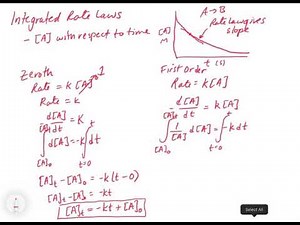 Integrated Rate Laws
- [A] with respect to time
[A]
M
A → B
Rate law gives
slope
t (s)
Zeroth
Rate = k[A]⁰ 1
Rate = k
d[A]/dt = k
∫ d[A] = -k ∫ dt
[A]t
[A]₀
t
t=0
[A]t - [A]₀ = -k(t-0)
[A]t - [A]₀ = -kt
[A]t = -kt + [A]₀
First Order
Rate = k[A]
-d[A]/dt = k[A]
∫ 1/[A] d[A] = ∫ -k dt
[A]t
[A]₀
t
t=0
Select All